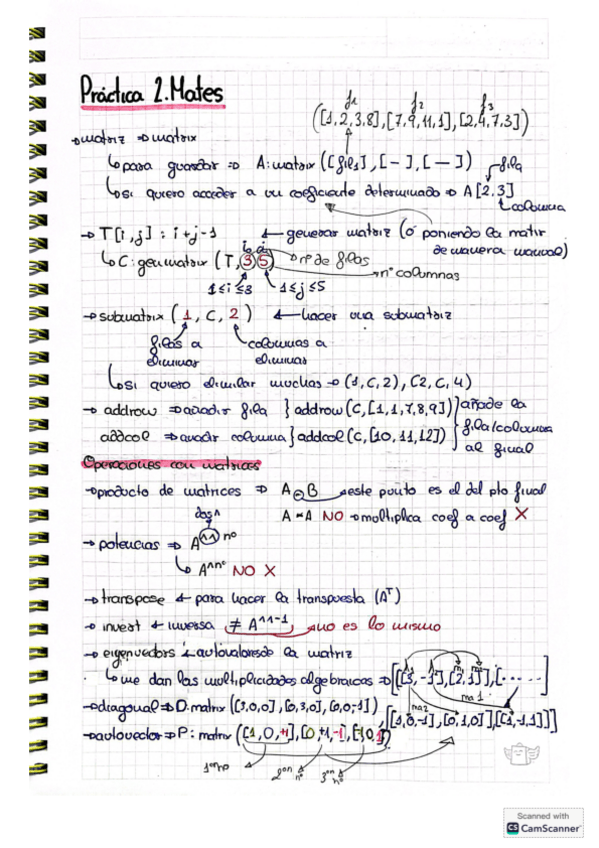 Práctica 2. Mates
f1 f2 f3
([1,2,3,8],[7,9,11,1],[2,4,7,3])
→ matriz ⇒ matrix
↳ para guardar ⇒ A: matrix([fil1],[-],[-]) fila
↳ si quiero acceder a un coeficiente determinado ⇒ A[2,3]
columna
→ T[i,j] : i+j-1 ← generar matriz (ó poniendo la matir
de manera manual)
↳ C: genmatrix (T,3,5) nº de filas
nº columnas
1≤i≤3 1≤j≤5
→ submatrix (1, C, 2) ← hacer una submatriz
filas a columnas a
eliminar eliminar
↳ Si quiero eliminar muchas → (1,C,2), (2,C,4)
→ addrow ⇒ añadir fila } addrow(C,[1,1,7,8,9]) } añade la
addcol ⇒ añadir columna } addcol(C,[10,11,12]) } fila/columna
al final
Operaciones con matrices
→ producto de matrices ⇒ A.B este punto es el del pto final
A*A NO → multiplica coef a coef X
dos ^
→ potencias ⇒ A^^nº
↳ A^nº NO X
→ transpose ← para hacer la transpuesta (Aᵀ)
→ invert ← inversa ≠ A^^-1 no es lo mismo
→ autovalores de la matriz
↳ me dan las multiplicidades algebraicas ⇒ [[[3,-1],[2,1]],[.....]
ma 2 ma 1
→ diagonal ⇒ D: matrix([3,0,0],[0,3,0],[0,0,-1])
[[1,0,-1],[0,1,0]],[[1,-1,1]]]
→ autovector ⇒ P: matrix([1,0,+1],[0+1,-1],[-1 0,1])
Scanned with
CS CamScanner